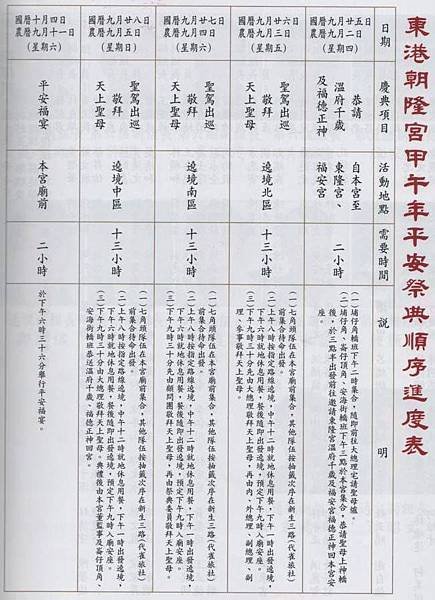 東港朝隆宮甲午年平安祭典順序進度表
日期
慶典項目
活動地點
需要時間
說明
國曆九月廿五日
農曆九月初二日
(星期四)
恭請
溫府千歲
及福德正神
自本宮至
東隆宮、
福安宮
二小時
(一)埔仔角橋班下午二時集合，隨即前往大總理宅請聖母爐。
(二)埔仔角、崙仔頂角、安海街橋班下午三點於本宮集合，恭請聖母上神橋
後，於三點半出發前往邀請東隆宮溫府千歲及福安宮福德正神回本宮安
座。
國曆九月廿六日
農曆九月初三日
(星期五)
聖駕出巡
敬拜
天上聖母
遶境北區
十三小時
(一)七角頭隊伍在本宮廟前集合，其他隊伍按抽籤次序在新生三路(代雀旅社)
前集合待命出發。
(二)上午八時按指定路線遶境，中午十二時就地休息用餐，下午一時出發遶境，
下午六時就地休息用餐，餐後隨即出發遶境，預定下午九時入廟安座。
(三)下午九時三十分先由大總理敬拜天上聖母，再由內、外總理、副總理、副
理、參事敬拜天上聖母。
國曆九月廿七日
農曆九月初四日
(星期六)
聖駕出巡
敬拜
天上聖母
遶境南區
十三小時
(一)七角頭隊伍在本宮廟前集合，其他隊伍按抽籤次序在新生三路(代雀旅社)
前集合待命出發。
(二)上午八時按指定路線遶境，中午十二時就地休息用餐，下午一時出發遶境，
下午六時就地休息用餐，餐後隨即出發遶境，預定下午九時入廟安座。
(三)下午九時三十分先由顧問團敬拜天上聖母，再由祭典委員敬拜天上聖母。
國曆九月廿八日
農曆九月初五日
(星期日)
聖駕出巡
敬拜
天上聖母
遶境中區
十三小時
(一)七角頭隊伍在本宮廟前集合，其他隊伍按抽籤次序在新生三路(代雀旅社)
前集合待命出發。
(二)上午八時按指定路線遶境，中午十二時就地休息用餐，下午一時出發遶境，
下午六時就地休息用餐，餐後隨即出發遶境，預定下午九時入廟安座。
(三)下午九時三十分由大總理敬拜天上聖母。典禮後由本宮董監事及崙仔頂角、
安海街橋班恭送溫府千歲、福德正神回宮。
國曆十月四日
農曆九月十一日
(星期六)
平安福宴
本宮廟前
二小時
於下午六時三十六分舉行平安福宴。